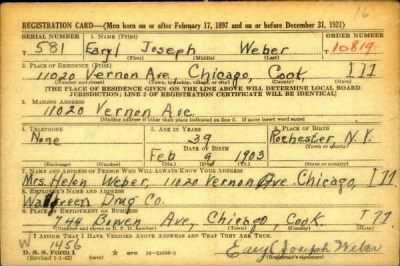 16
REGISTRATION CARD—(Men born on or after February 17, 1897 and on or before December 31, 1921)
SERIAL NUMBER 1. NAME (Print) ORDER NUMBER
T 581 Earyl Joseph Weber T 10819
(First) (Middle) (Last)
2. PLACE OF RESIDENCE (Print)
11020 Vernon Ave, Chicago, Cook, Ill
(Number and street) (Town, township, village, or city) (County) (State)
[THE PLACE OF RESIDENCE GIVEN ON THE LINE ABOVE WILL DETERMINE LOCAL BOARD
JURISDICTION; LINE 2 OF REGISTRATION CERTIFICATE WILL BE IDENTICAL]
3. MAILING ADDRESS
11020 Vernon Ave.
[Mailing address if other than place indicated on line 2. If same insert word same]
4. TELEPHONE 5. AGE IN YEARS 6. PLACE OF BIRTH
None 39 Rochester
DATE OF BIRTH (Town or county)
Feb 9 1903 N.Y.
(Exchange) (Number) (Mo.) (Day) (Yr.) (State or country)
7. NAME AND ADDRESS OF PERSON WHO WILL ALWAYS KNOW YOUR ADDRESS
Mrs Helen Weber, 11020 Vernon Ave Chicago, Ill
8. EMPLOYER'S NAME AND ADDRESS
Walgreen Drug Co.
9. PLACE OF EMPLOYMENT OR BUSINESS
744 Bowen Ave, Chicago Cook Ill
(Number and street or R. F. D. number) (Town) (County) (State)
I AFFIRM THAT I HAVE VERIFIED ABOVE ANSWERS AND THAT THEY ARE TRUE.
W 1456
D. S. S. Form 1 GPO
(Revised 1-1-42) (over) Earyl Joseph Weber